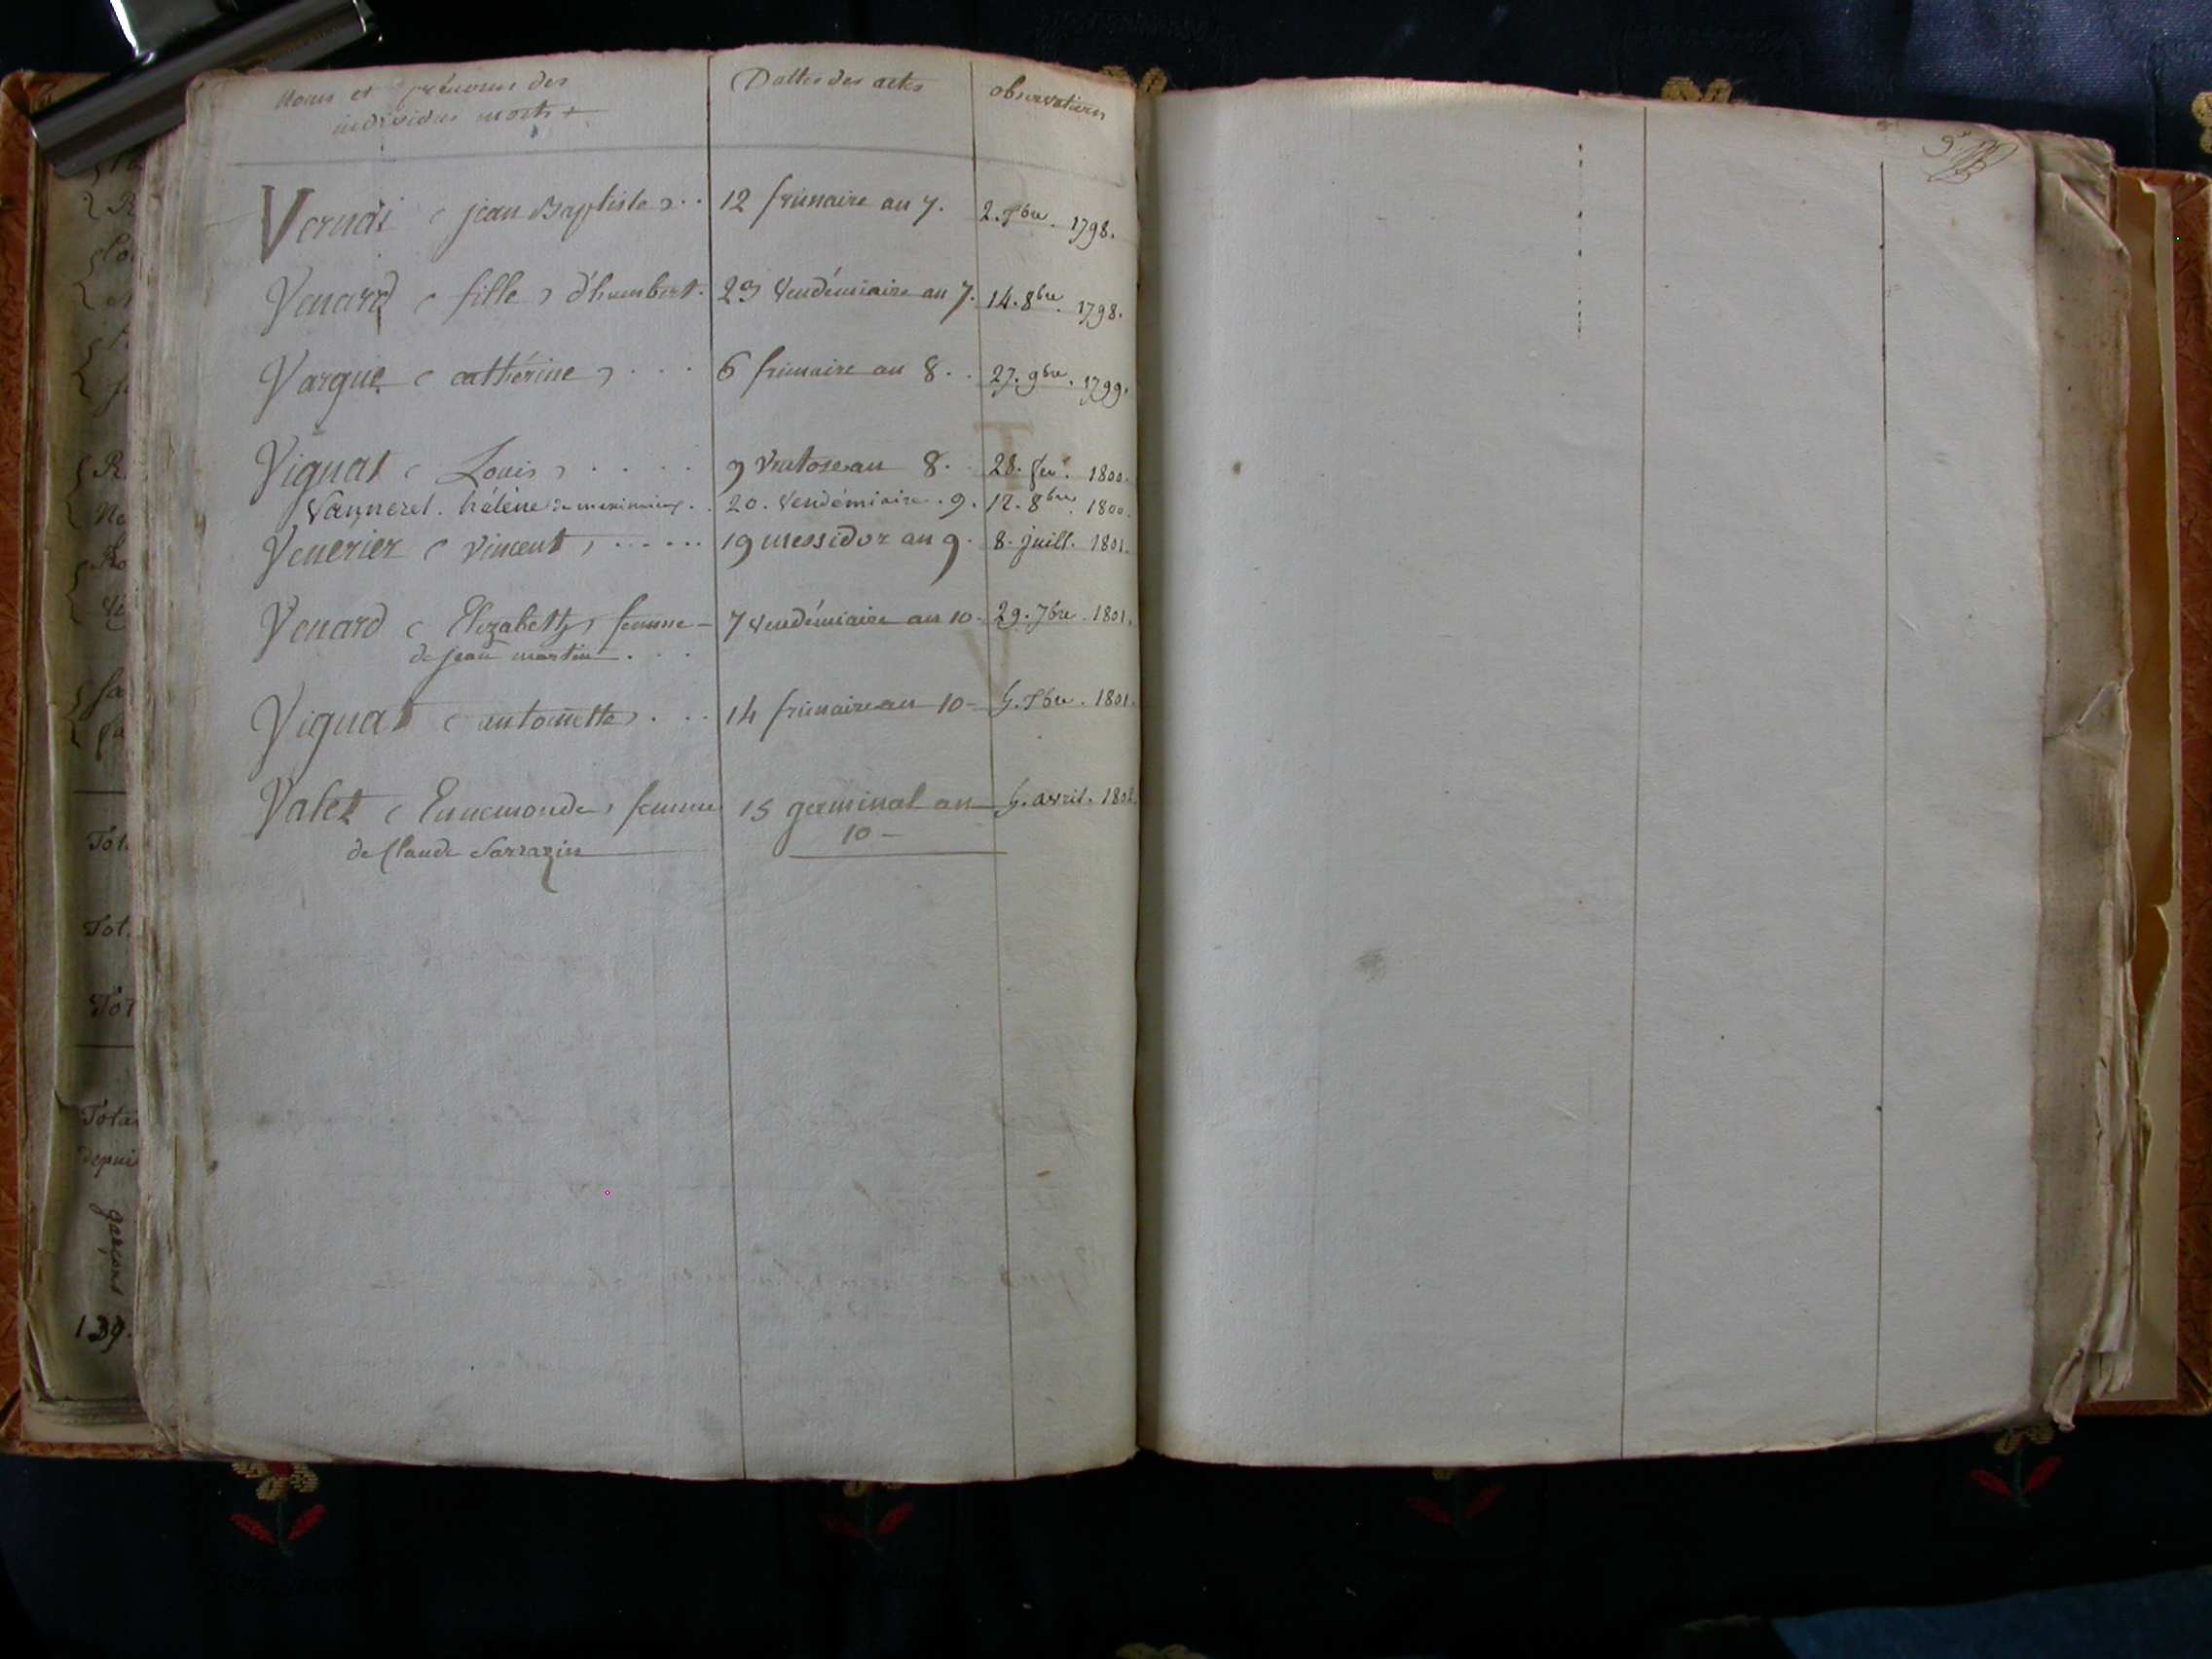 Noms et prénoms des
individus morts +
Dattes des actes
observations
Vernai ( jean Baptiste ) . . 12 frimaire an 7. 2. Xbre. 1798.
Venard ( fille ) d'humbert. 23 Vendémiaire an 7. 14. 8bre. 1798.
Vargue ( cathérine ) . . . 6 frimaire an 8. . 27. 9bre. 1799.
Vignat ( Louis ) . . . . . 9 Ventose an 8. 28. fev. 1800.
Vanneret. hélène de meximieux. . 20. Vendémiaire. 9. 12. 8bre. 1800.
Venerier ( Vincent ) . . . . . . 19 messidor an 9. 8. juill. 1801.
Venard ( Elizabeth ) femme - 7 Vendémiaire an 10- 29. 7bre. 1801.
de jean martin . . .
Vignat ( antoinette ) . . . 14 frimaire an 10- 5. Xbre. 1801.
Valet ( Ennemonde ) femme 15 germinal an 5. avril. 1802.
10 -
de Claude Sarrazin
Tot.
Tot.
Tot
Tota
depui
garçons
139.